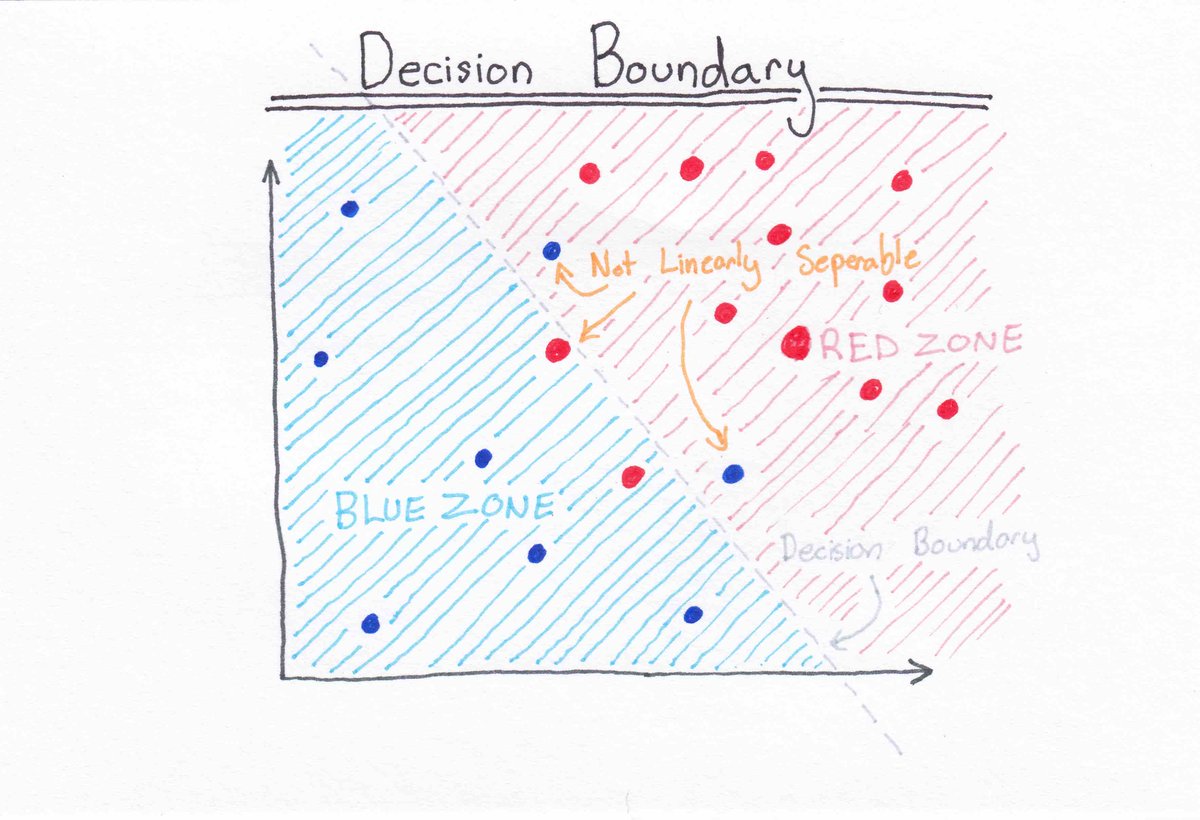 Decision Boundary
Not Linearly Seperable
RED ZONE
BLUE ZONE
Decision Boundary